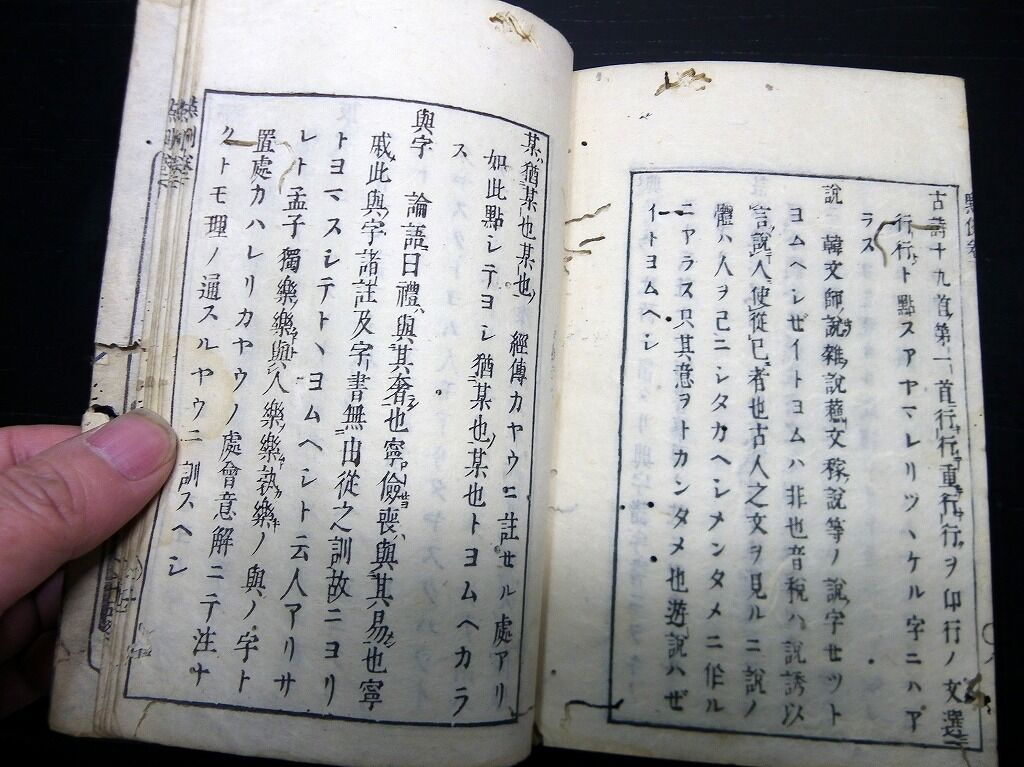 古詩十九首第一首行行重行行ヲ印行ノ文選ニ
行行ト點スアヤマレリツヽケル字ニハア
ラス
說 韓文師說雜說蘓文稼說等ノ說字セツト
ヨムヘシゼイトヨムハ非也音稅ハ說誘以
言說人使從己者也古人之文ヲ見ルニ說ノ
體ハ人ヲ己ニシタカヘシメンタメニ作ル
ニアラス只其意ヲトカンタメ也遊說ハゼ
イトヨムヘシ
某猶某也某也 經傳カヤウニ註セル處アリ
如此點シテヨシ猶某也某也トヨムヘカラ
ス
與字 論語曰禮與其奢也寧儉喪與其易也寧
戚此與字諸註及字書無出從之訓故ニヨリ
トヨマスシテトヽヨムヘシト云人アリサ
レト孟子獨樂樂與人樂樂孰樂ノ與ノ字ト
置處カハレリカヤウノ處會意解ニテ注ナ
クトモ理ノ通スルヤウニ訓スヘシ